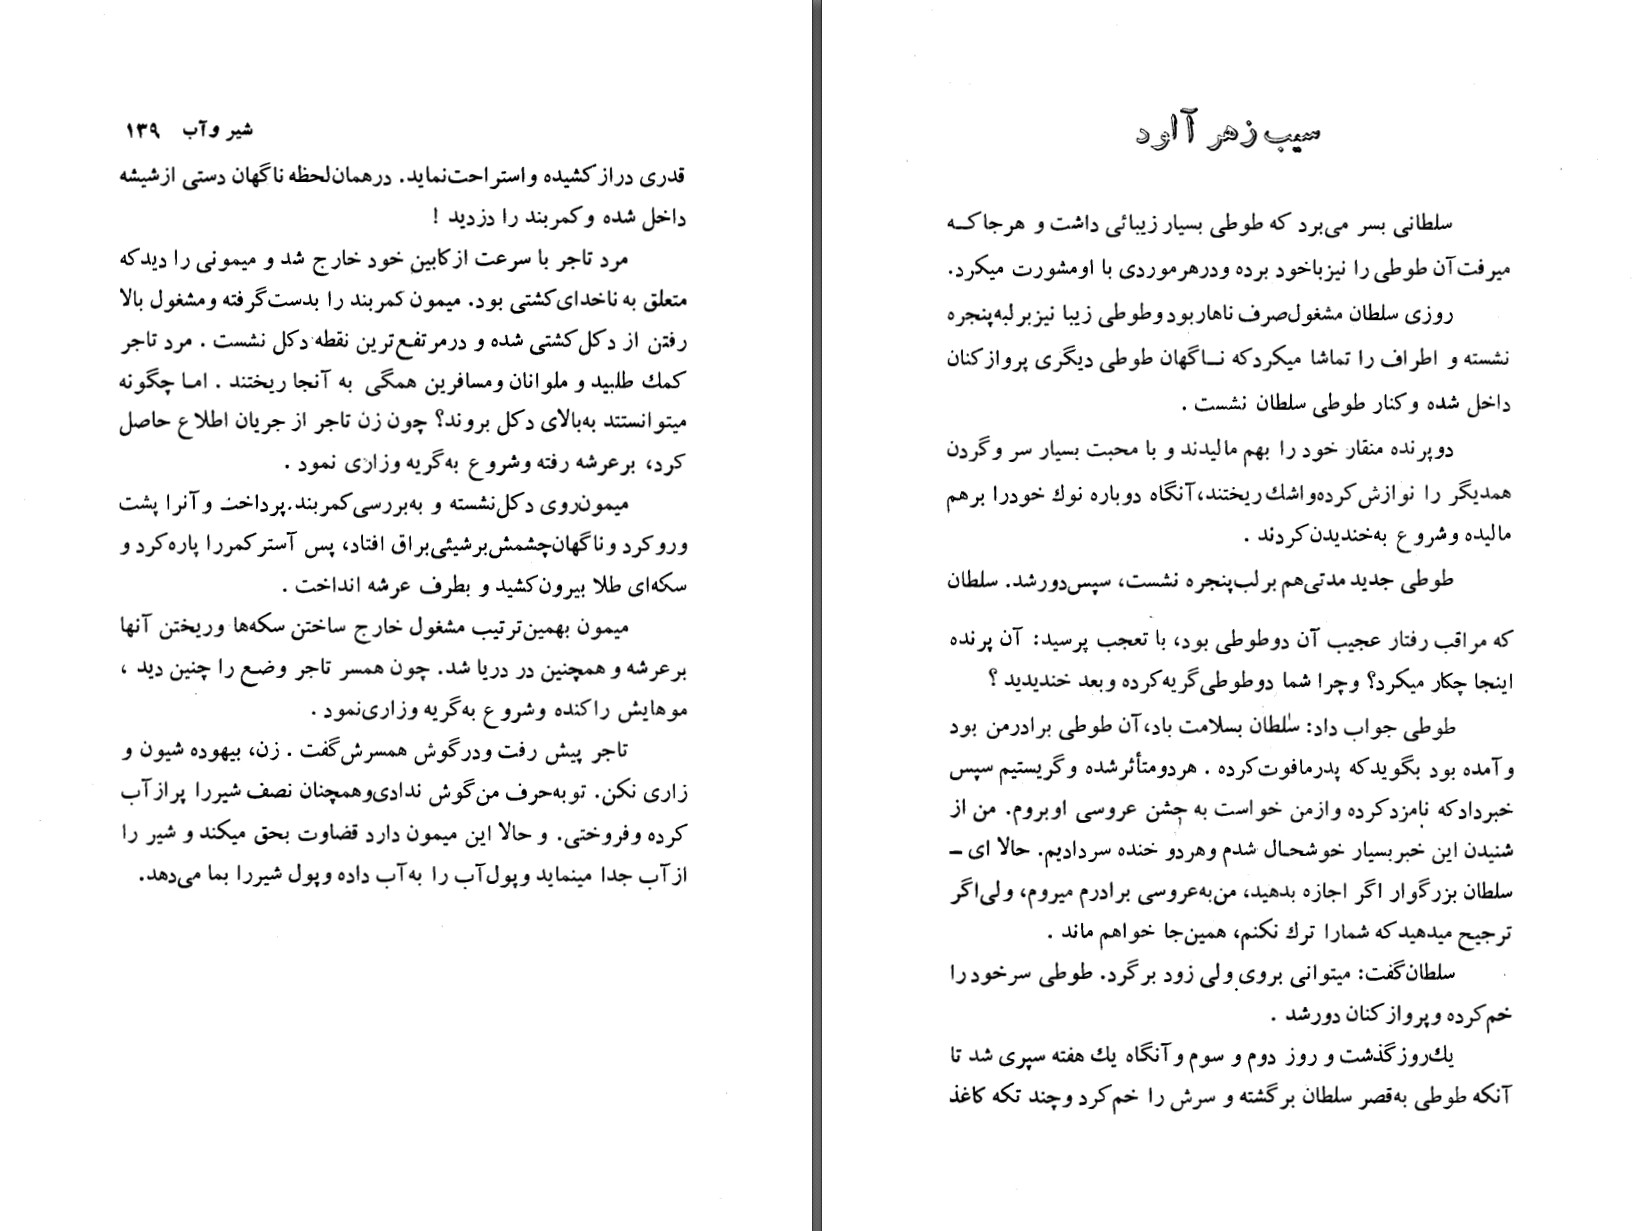 شیر و آب ۱۳۹
قدری دراز کشیده و استراحت نماید. در همان لحظه ناگهان دستی از شیشه
داخل شده و کمربند را دزدید !
مرد تاجر با سرعت از کابین خود خارج شد و میمونی را دید که
متعلق به ناخدای کشتی بود. میمون کمربند را بدست گرفته و مشغول بالا
رفتن از دکل کشتی شده و در مرتفع‌ترین نقطه دکل نشست . مرد تاجر
کمك طلبید و ملوانان و مسافرین همگی به آنجا ریختند . امـا چگونه
میتوانستند به‌بالای دکل بروند؟ چون زن تاجر از جریان اطلاع حاصل
کرد، برعرشه رفته و شروع به‌گریه و زاری نمود .
میمون روی دکل نشسته و به‌بررسی کمربند پرداخت و آنرا پشت
ورو کرد و ناگهان چشمش برشیئی براق افتاد، پس آستر کمر را پاره کرد و
سکه‌ای طلا بیرون کشید و بطرف عرشه انداخت .
میمون بهمین ترتیب مشغول خارج ساختن سکه‌ها و ریختن آنها
برعرشه و همچنین در دریا شد. چون همسر تاجر وضع را چنین دید ،
موهایش را کنده و شروع به‌گریه و زاری نمود .
تاجر پیش رفت و در گوش همسرش گفت . زن، بیهوده شیون و
زاری نکن. تو به‌حرف من گوش ندادی و همچنان نصف شیر را پر از آب
کرده و فروختی. و حالا این میمون دارد قضاوت بحق میکند و شیر را
از آب جدا مینماید و پول آب را به‌آب داده و پول شیر را بما می‌دهد.
سیب زهر آلود
سلطانی بسر می‌برد که طوطی بسیار زیبائی داشت و هرجا کـه
میرفت آن طوطی را نیز باخود برده و در هر موردی با او مشورت میکرد.
روزی سلطان مشغول صرف ناهار بود و طوطی زیبا نیز بر لبه پنجره
نشسته و اطراف را تماشا میکرد که نـاگهان طوطی دیگری پرواز کنان
داخل شده و کنار طوطی سلطان نشست .
دو پرنده منقار خود را بهم مالیدند و با محبت بسیار سر و گردن
همدیگر را نوازش کرده و اشك ریختند، آنگاه دوباره نوك خود را برهم
مالیده و شروع به‌خندیدن کردند .
طوطی جدید مدتی هم بر لب پنجره نشست، سپس دور شد. سلطان
که مراقب رفتار عجیب آن دو طوطی بود، با تعجب پرسید: آن پرنده
اینجا چکار میکرد؟ و چرا شما دو طوطی گریه کرده و بعد خندیدید ؟
طوطی جواب داد: سلطان بسلامت باد، آن طوطی برادر من بود
و آمده بود بگوید که پدر ما فوت کرده . هر دو متأثر شده و گریستیم سپس
خبر داد که نامزد کرده و از من خواست به جشن عروسی او بروم. من از
شنیدن این خبر بسیار خوشحـال شدم و هر دو خنده سر دادیم. حالا ای ـ
سلطان بزرگوار اگر اجازه بدهید، من به‌عروسی برادرم میروم، ولی اگر
ترجیح میدهید که شما را ترك نکنم، همین‌جا خواهم ماند .
سلطان گفت: میتوانی بروی ولی زود برگرد. طوطی سر خود را
خم کرده و پرواز کنان دور شد .
یك روز گذشت و روز دوم و سوم و آنگاه یك هفته سپری شد تا
آنکه طوطی به‌قصر سلطان برگشته و سرش را خم کرد و چند تکه کاغذ